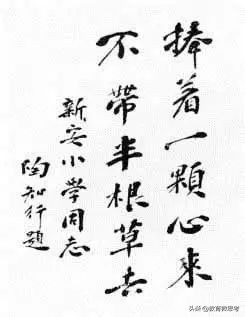 捧着一顆心來
不帶半根草去
新安小学同志
陶知行題
头条@教育微思考